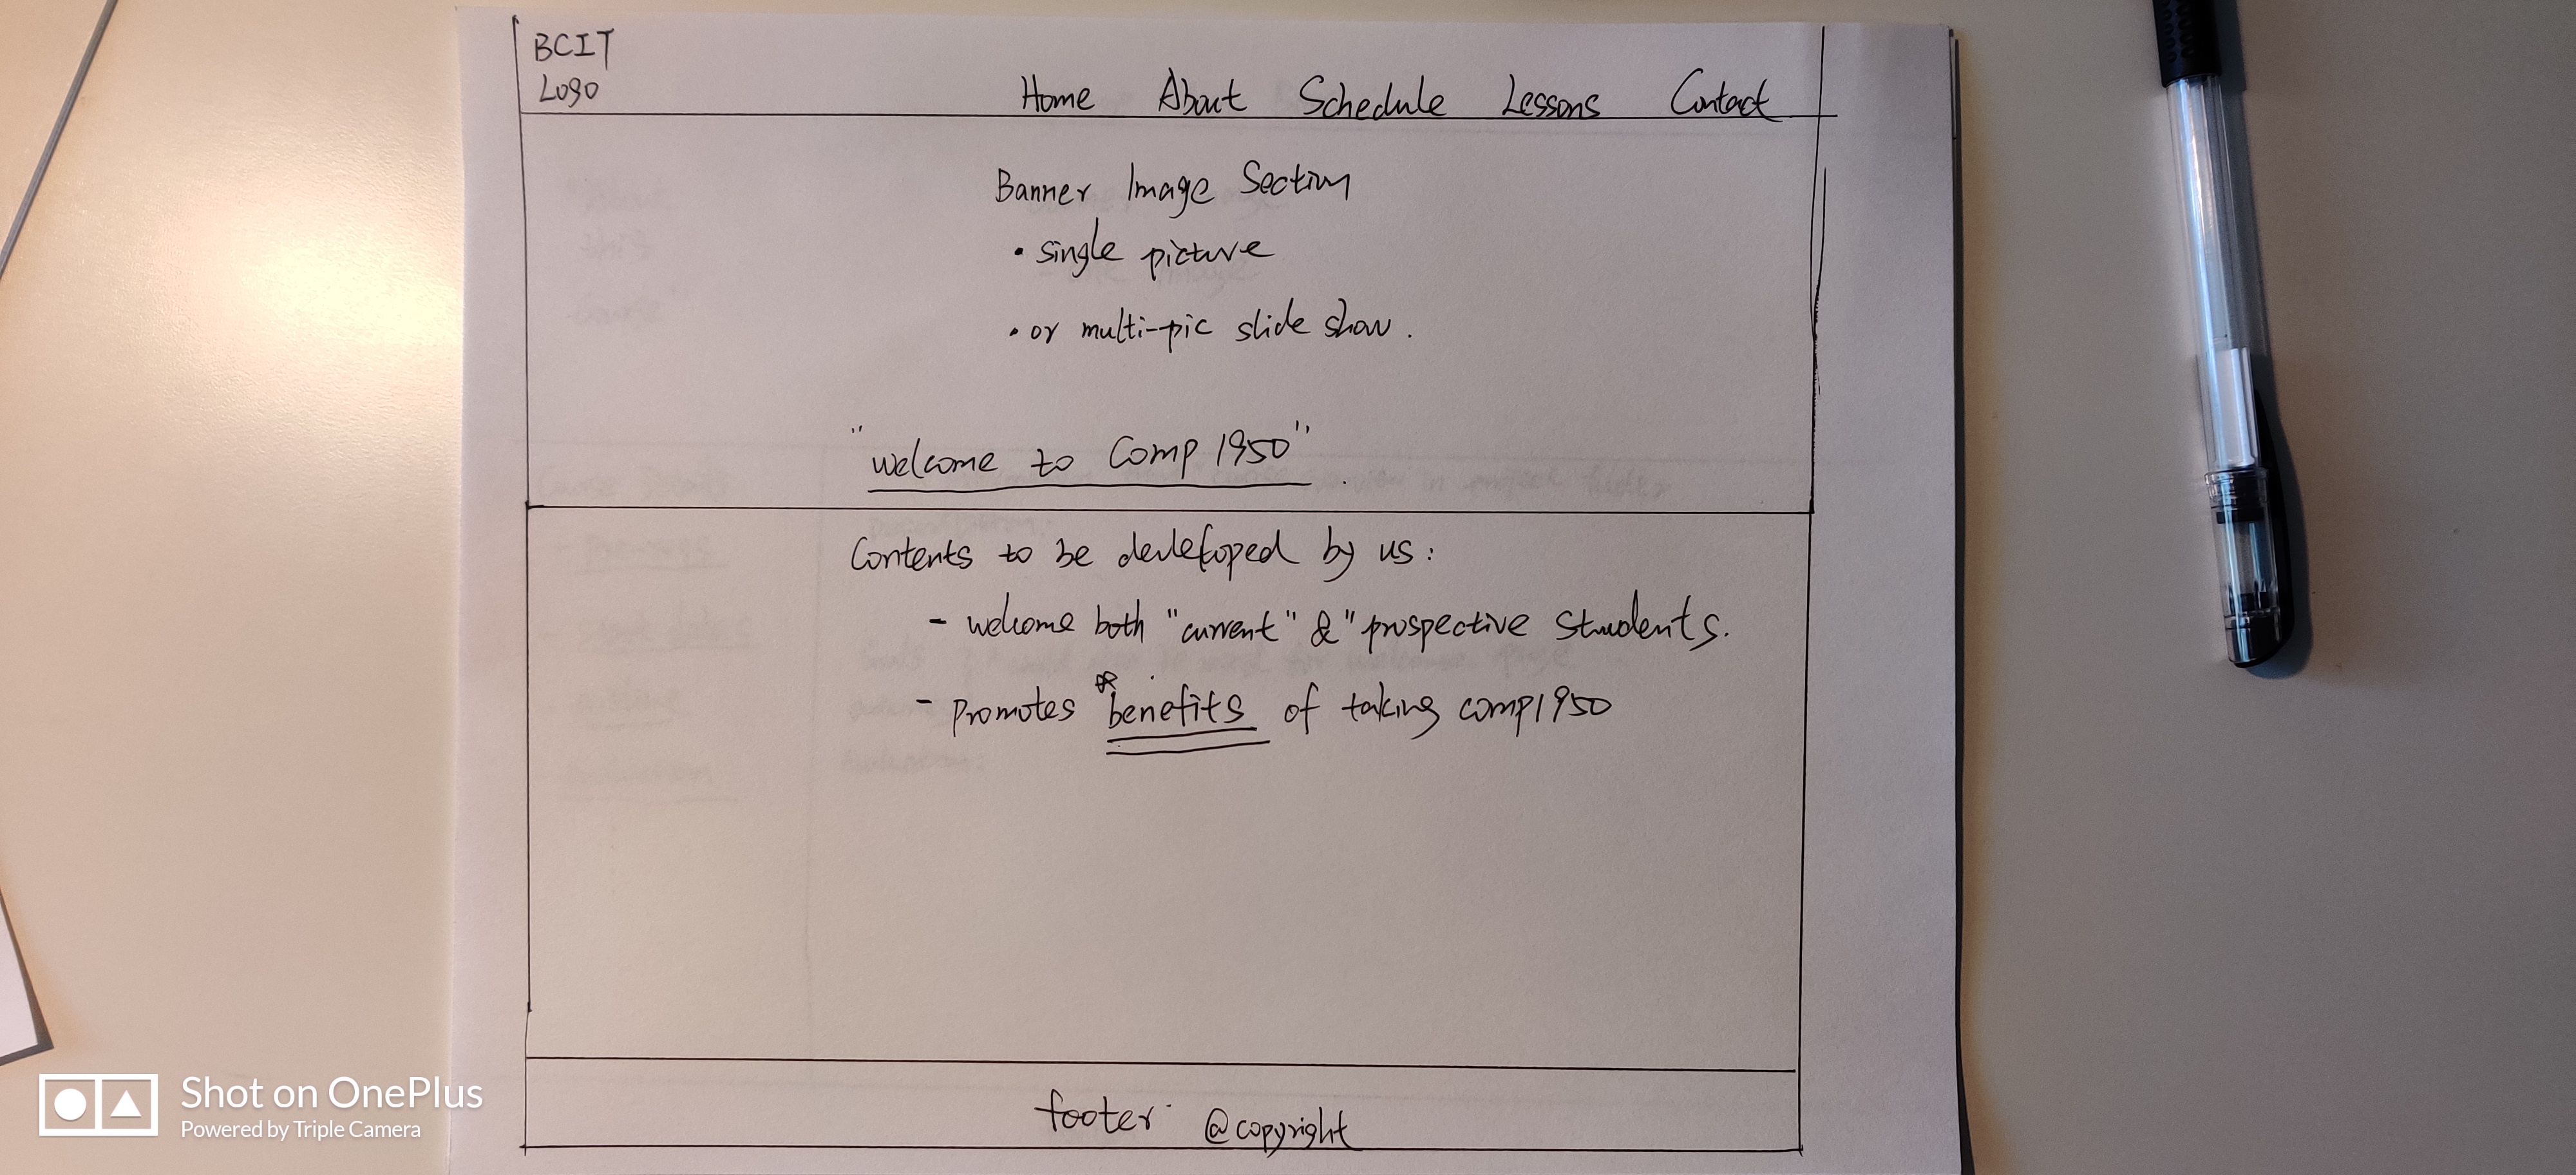 BCIT
Logo
Home About Schedule Lessons Contact
Banner Image Section
• single picture
• or multi-pic slide show.
"welcome to Comp 1950"
Contents to be developed by us:
- welcome both "current" & "prospective students.
- promotes benefits of taking comp1950
footer @copyright
Shot on OnePlus
Powered by Triple Camera